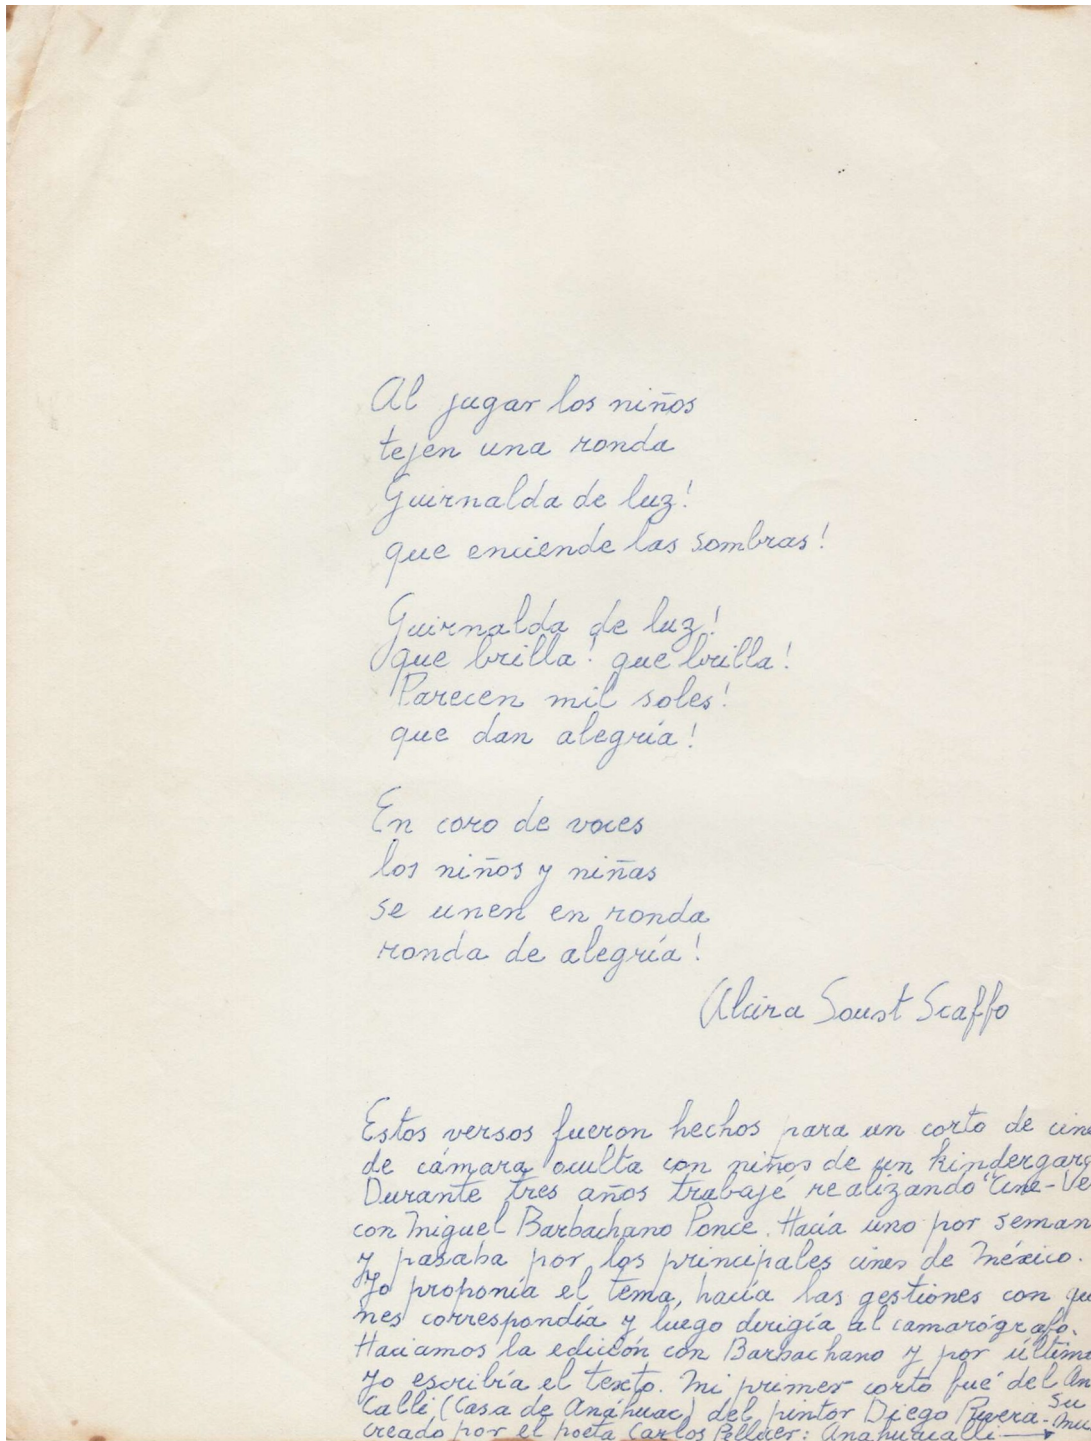 Al jugar los niños
tejen una ronda
Guirnalda de luz!
que enciende las sombras!
Guirnalda de luz!
que brilla! que brilla!
Parecen mil soles!
que dan alegría!
En coro de voces
los niños y niñas
se unen en ronda
ronda de alegría!
Alcira Soust Scaffo
Estos versos fueron hechos para un corto de cine
de cámara oculta con niños de un kindergar
Durante tres años trabajé realizando "Cine-Ve
con Miguel Barbachano Ponce. Hacía uno por seman
y pasaba por los principales cines de México.
Yo proponía el tema, hacía las gestiones con qu
nes correspondía y luego dirigía al camarógrafo.
Hacíamos la edición con Barbachano y por último
yo escribía el texto. Mi primer corto fué del An
Calli (Casa de Anáhuac) del pintor Diego Rivera - Su mu
creado por el poeta Carlos Pellicer: Anahuacalli →